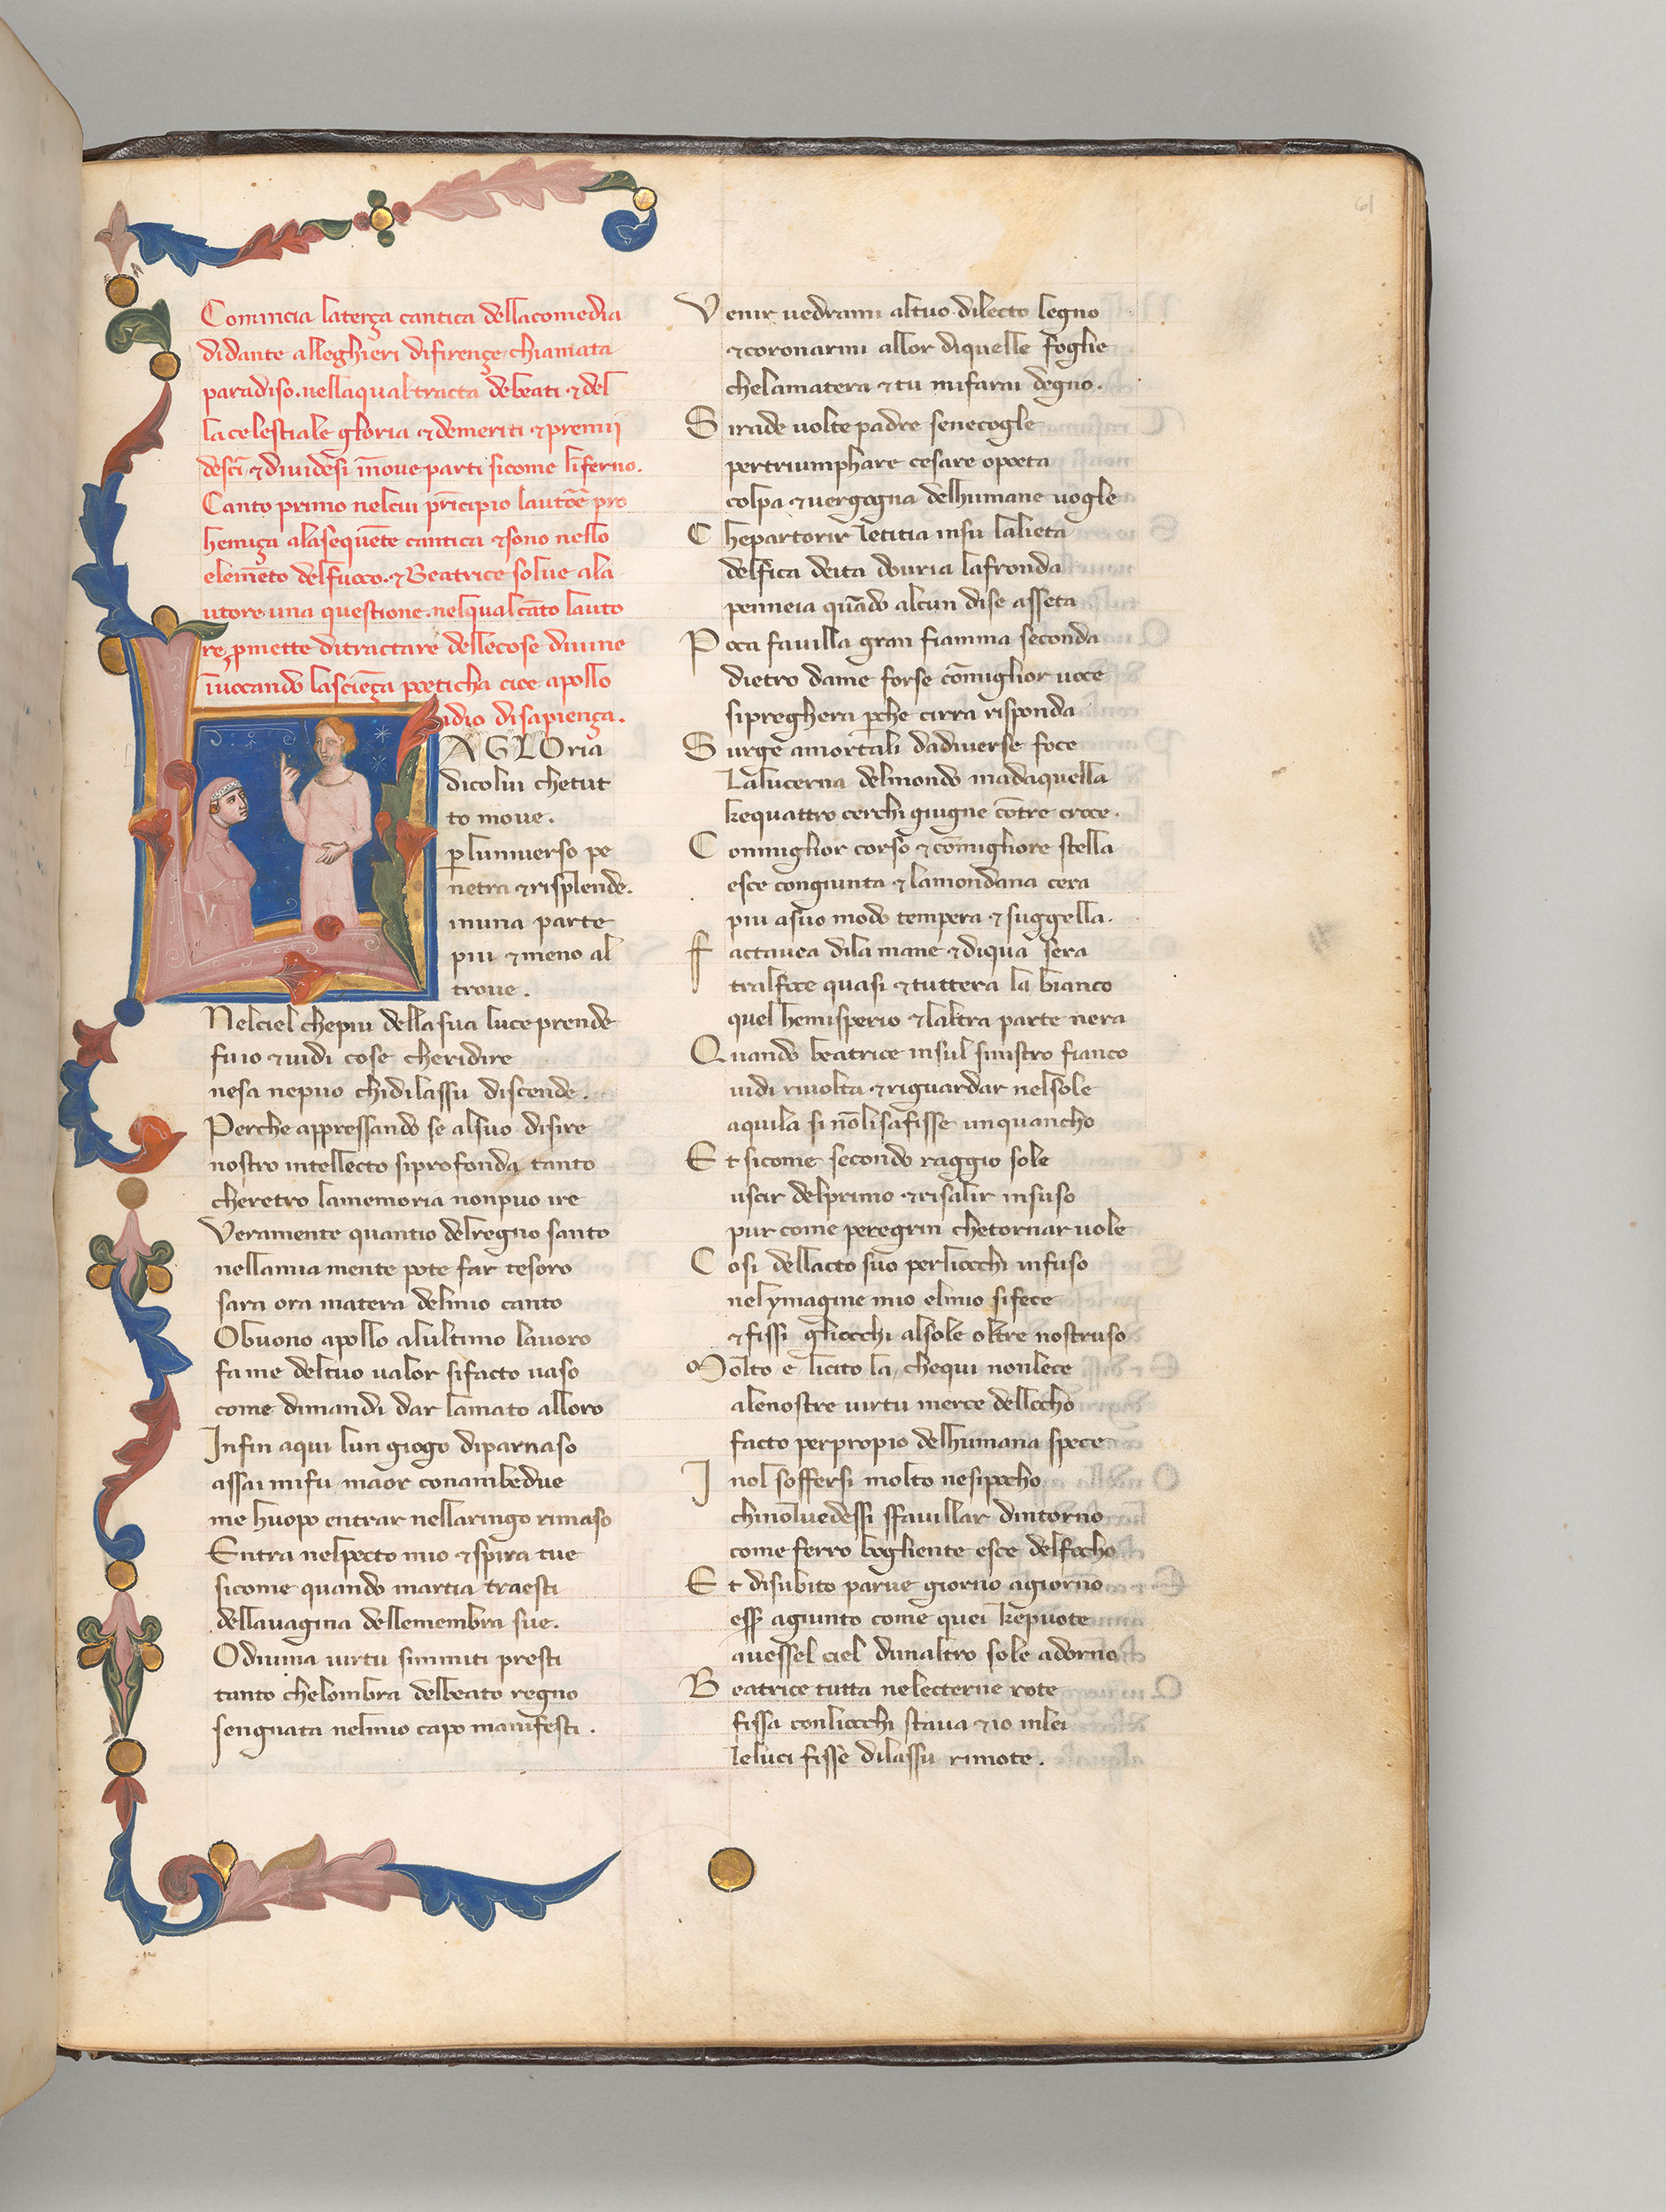 Comincia laterça cantica dellacomedia
didante alleghieri difirençe chiamata
paradiso. nellaqual tracta debeati ⁊ del
la celestiale gloria ⁊ demeriti ⁊ premij
desc̄i ⁊ diuidesi īnoue parti sicome linferno.
Canto primo nelcui prīcipio lautōe pro
hemiça alasequēte cantica ⁊ sono nello
elemēto delfuoco. ⁊ Beatrice solue ala
utore una questione. nelqual cāto lauto
re pmette ditractare dellecose diuine
īuocando lasciēça poeticha cioe apollo
idio disapiença.
LAGLOria
dicolui chetut
to moue.
ꝑluniuerso pe
netra ⁊ risplende.
inuna parte
piu ⁊ meno al
troue.
Nelciel chepiu dellasua luce prende
fuio ⁊ uidi cose cheridire
nesa nepuo chidilassu discende.
Perche appressando se alsuo disire
nostro intellecto siprofonda tanto
cheretro lamemoria nonpuo ire
Veramente quantio delregno santo
nellamia mente pote far tesoro
sara ora matera delmio canto
Obuono apollo alultimo lauoro
fa me deltuo ualor sifacto uaso
come dimandi dar lamato alloro
Infin aqui lun giogo diparnaso
assai mifu maor conambedue
me huopo entrar nellaringo rimaso
Entra nelpecto mio ⁊ spira tue
sicome quando martia traesti
dellauagina dellemembra sue.
Odiuina uirtu simmiti presti
tanto chelombra delbeato regno
sengnata nelmio capo manifesti.
Venir uedrami altuo dilecto legno
⁊ coronarmi allor diquelle foglie
chelamatera ⁊ tu mifarai degno.
Sirade uolte padre senecogle
pertriumphare cesare opoeta
colpa ⁊ uergogna delhumane uogle
Chepartorir letitia insu lalieta
delfica deita douria lafronda
penneia quādo alcun dise asseta
Poca fauilla gran fiamma seconda
dietro dame forse cōmiglior uoce
sipreghera ꝑche cirra risponda
Surge amortali dadiuerse foce
Lalucerna delmondo madaquella
kequattro cerchi giugne cōtre croce.
Conmiglior corso ⁊ cōmigliore stella
esce congiunta ⁊ lamondana cera
piu asuo modo tempera ⁊ suggella.
Factauea dila mane ⁊ diqua sera
tralfoce quasi ⁊ tuttera la bianco
quel hemisperio ⁊ laltra parte nera
Quando beatrice insul sinistro fianco
uidi riuolta ⁊ riguardar nelsole
aquila si nōlisafisse unquancho
Et sicome secondo raggio sole
uscir delprimo ⁊ risalir insuso
pur come peregrin chetornar uole
Cosi dellacto suo perliocchi infuso
nelymagine mio elmio sifece
⁊ fissi gliocchi alsole oltre nostruso
Molto e licito la chequi nonlece
alenostre uirtu merce dellocho
facto perpropio delhumana spece
I nol soffersi molto nesipocho
chinoluedessi sfauillar dintorno
come ferro bogliente esce delfocho
Et disubito parue giorno agiorno
ess̄ agiunto come quei kepuote
auessel ciel dunaltro sole adorno
Beatrice tutta neletterne rote
fissa conliocchi staua ⁊ io inlei
leluci fisse dilassu rimote.
61